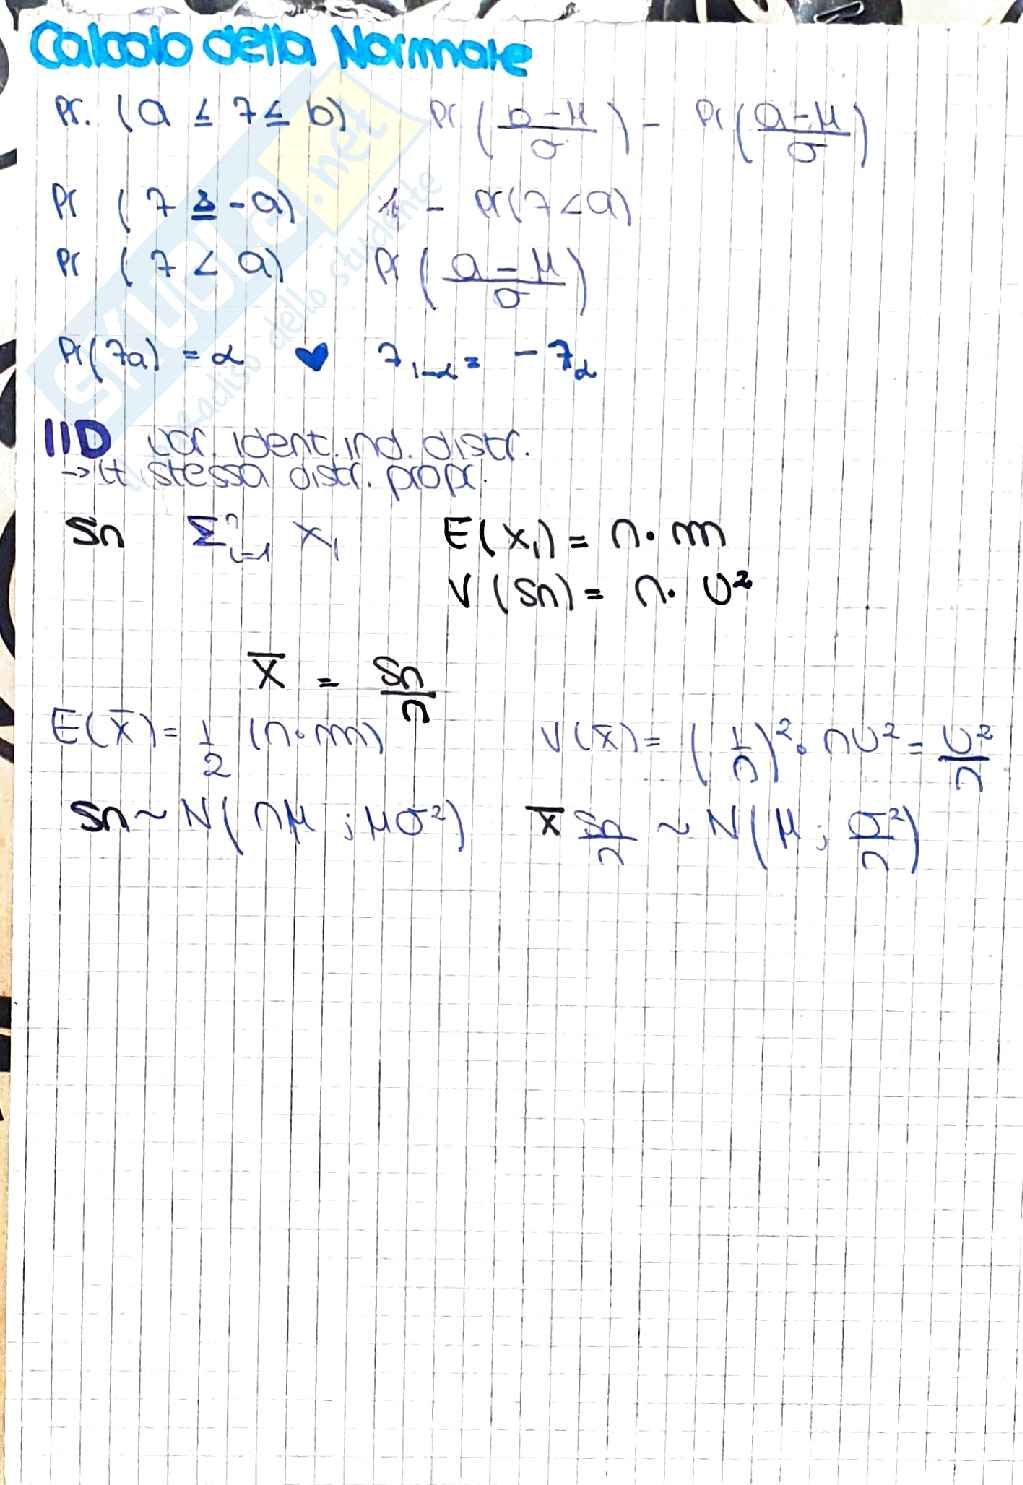 Calcolo della Normale
Pr. (a ≤ Z ≤ b) Pr (b-μ/σ) - Pr (a-μ/σ)
Pr (Z ≥ -a) 1 - Pr(Z<a)
Pr (Z < a) Pr (a-μ/σ)
Pr(Za) = α ♥ Z1-α = -Zα
IID var. ident. ind. distr.
→ stessa distr. propr.
Sn Σⁿi=1 Xi E(Xi) = n·m
V(Sn) = n·υ²
X̄ = Sn/n
E(X̄) = 1/2 (n·m) V(X̄) = (1/n)²· nυ² = υ²/n
Sn ~ N(nμ ; μσ²) X̄ Sn/n ~ N(μ ; σ²/n)
SKUOLA.net
dello studente